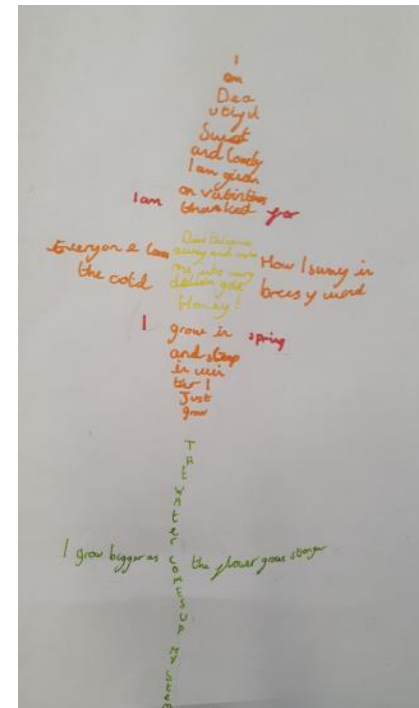 I
am
Bea
utiful
Sweet
and lovely
I am given
on valintines
I am thanked for
Everyone loves
the cold
away and
me into
Honey!
How I sway in
breesy wind
I grow in spring
and sleep
in win
ter I
Just
grow
THE WATER COMES UP MY STEM
I grow bigger as the flower grows stronger